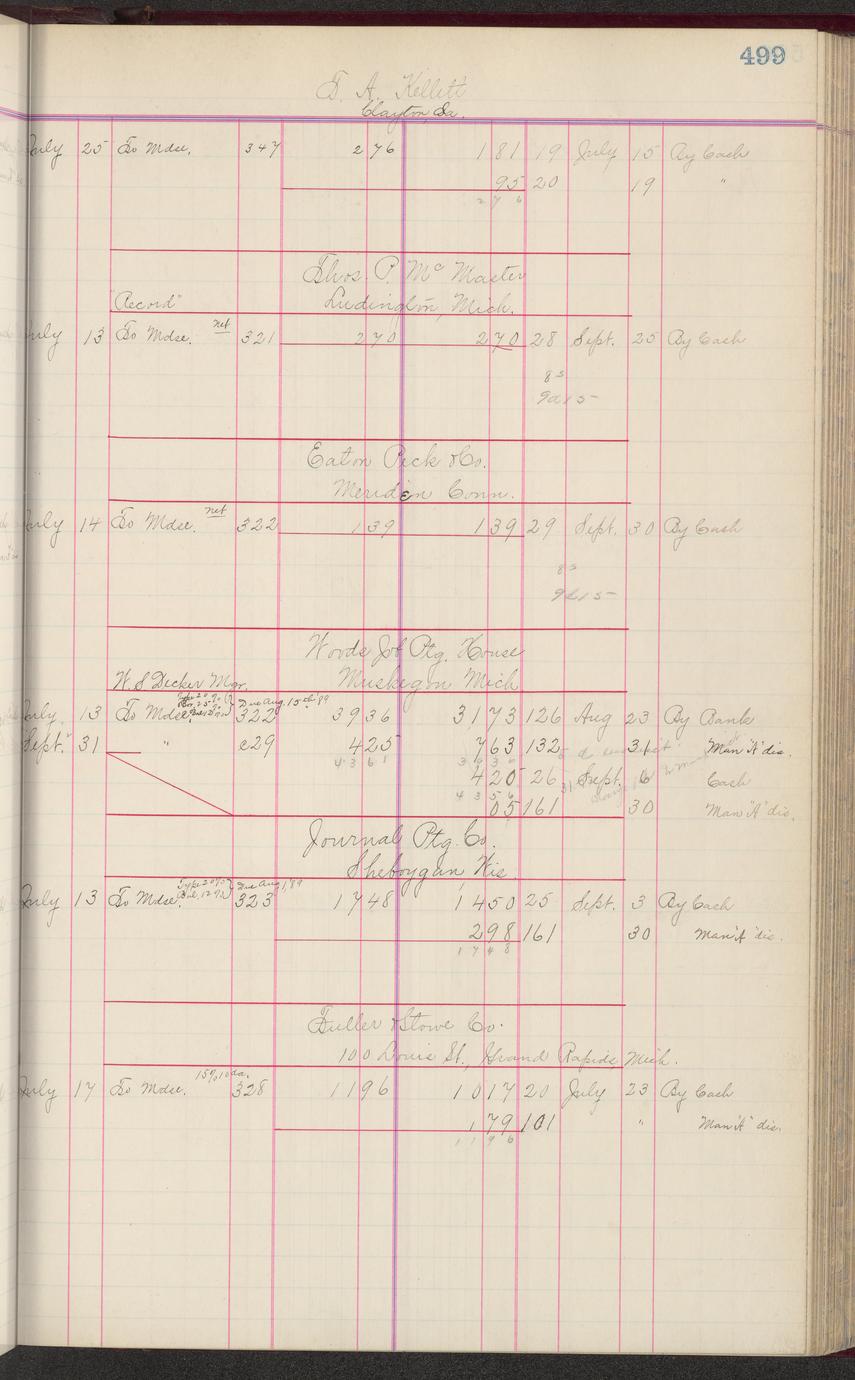 499
T. A. Kellett
Clayton, Ia.
July 25 To Mdse. 347 2 76 1 81 19 July 15 By Cash
95 20 19 "
2 7 6
Thos. P. Mc Master
"Record" Ludington, Mich.
July 13 To Mdse. net 321 2 70 2 70 28 Sept. 25 By Cash
8 5
Eaton Peck & Co.
Meriden Conn.
July 14 To Mdse. net 322 1 39 1 39 29 Sept. 30 By Cash
8 5
Woods Job Ptg. House
W. S Decker Mgr. Muskegon Mich
Due Aug. 15th '89
July 13 To Mdse. 322 39 36 31 73 126 Aug 23 By Bank
Sept. 31 " 229 4 25 7 63 132 31 Man "A" dis.
43 61
4 20 26 Sept. 6 Cash
43 56
05 161 30 Man "A" dis.
Journal Ptg. Co.
Sheboygan Wis.
Type 20% Due Aug 1, '89
July 13 To Mdse. 323 17 48 14 50 25 Sept. 3 By Cash
2 98 161 30 Man "A" dis.
17 48
Fuller & Stowe Co.
100 Louis St., Grand Rapids, Mich.
15% 10 da.
July 17 To Mdse. 328 11 96 10 17 20 July 23 By Cash
1 79 101 " Man "A" dis.
11 96